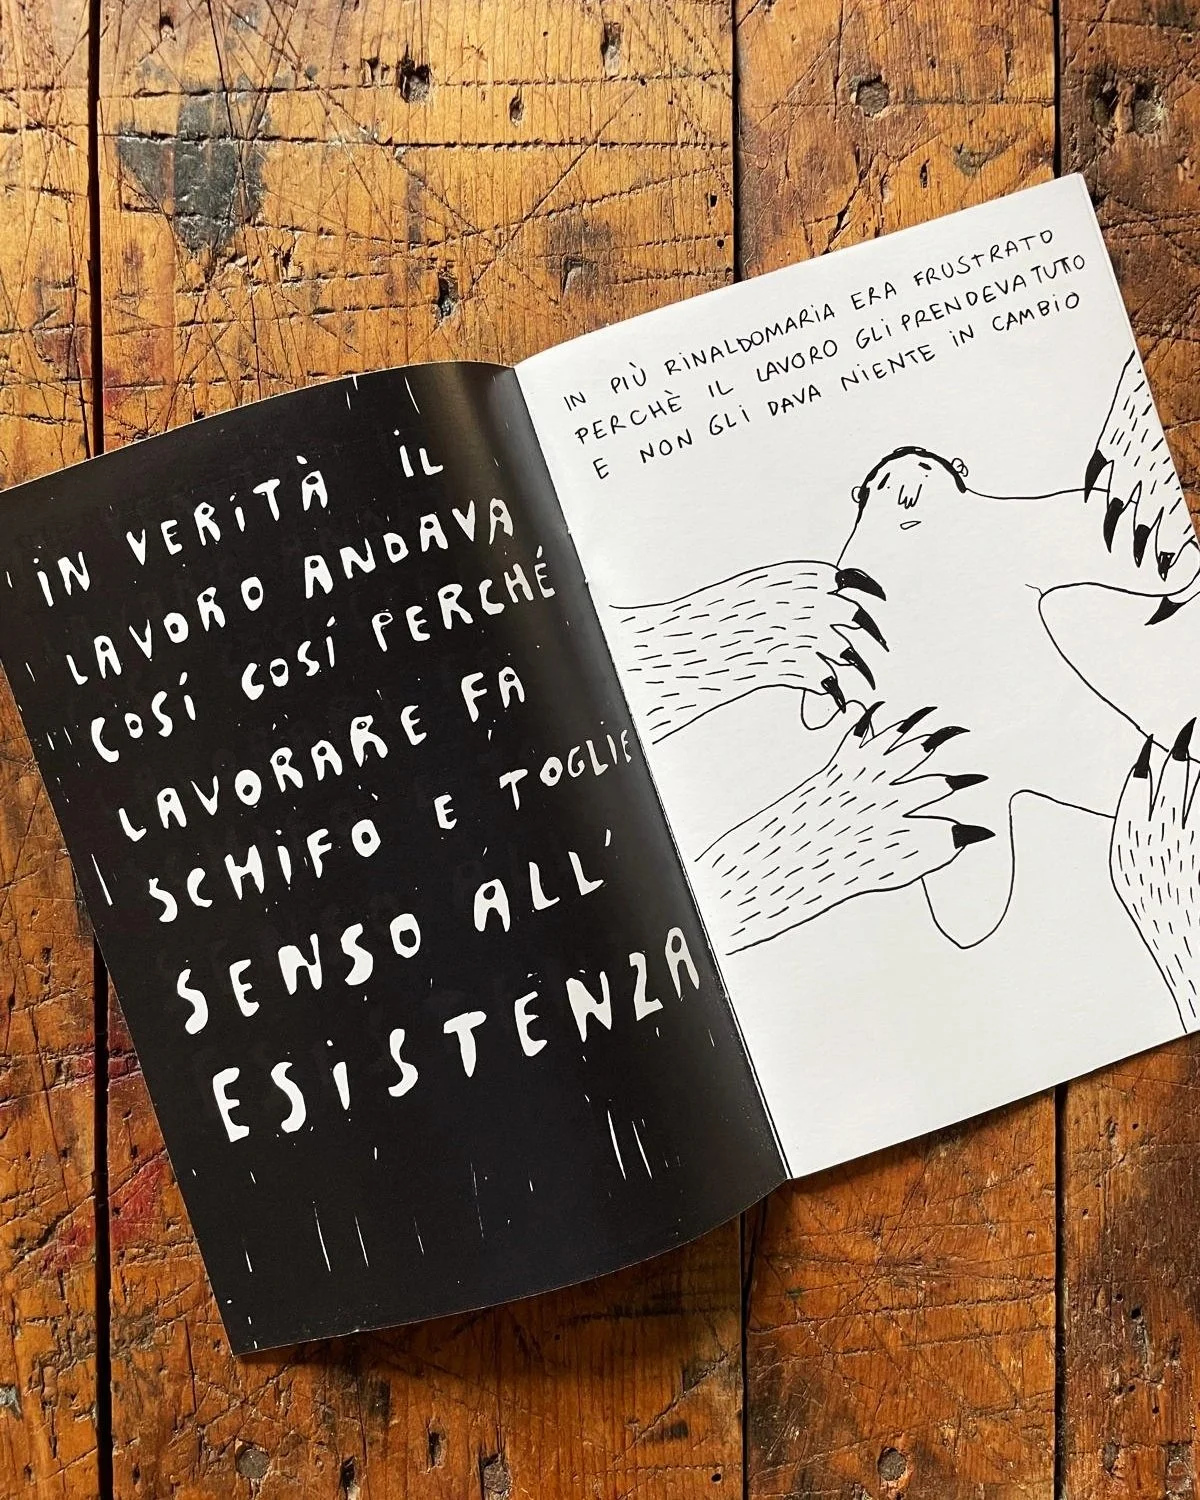 IN VERITÀ IL
LAVORO ANDAVA
COSÍ COSÍ PERCHÉ
LAVORARE FA
SCHIFO E TOGLIE
SENSO ALL'
ESISTENZA
IN PIÙ RINALDOMARIA ERA FRUSTRATO
PERCHÈ IL LAVORO GLI PRENDEVA TUTTO
E NON GLI DAVA NIENTE IN CAMBIO